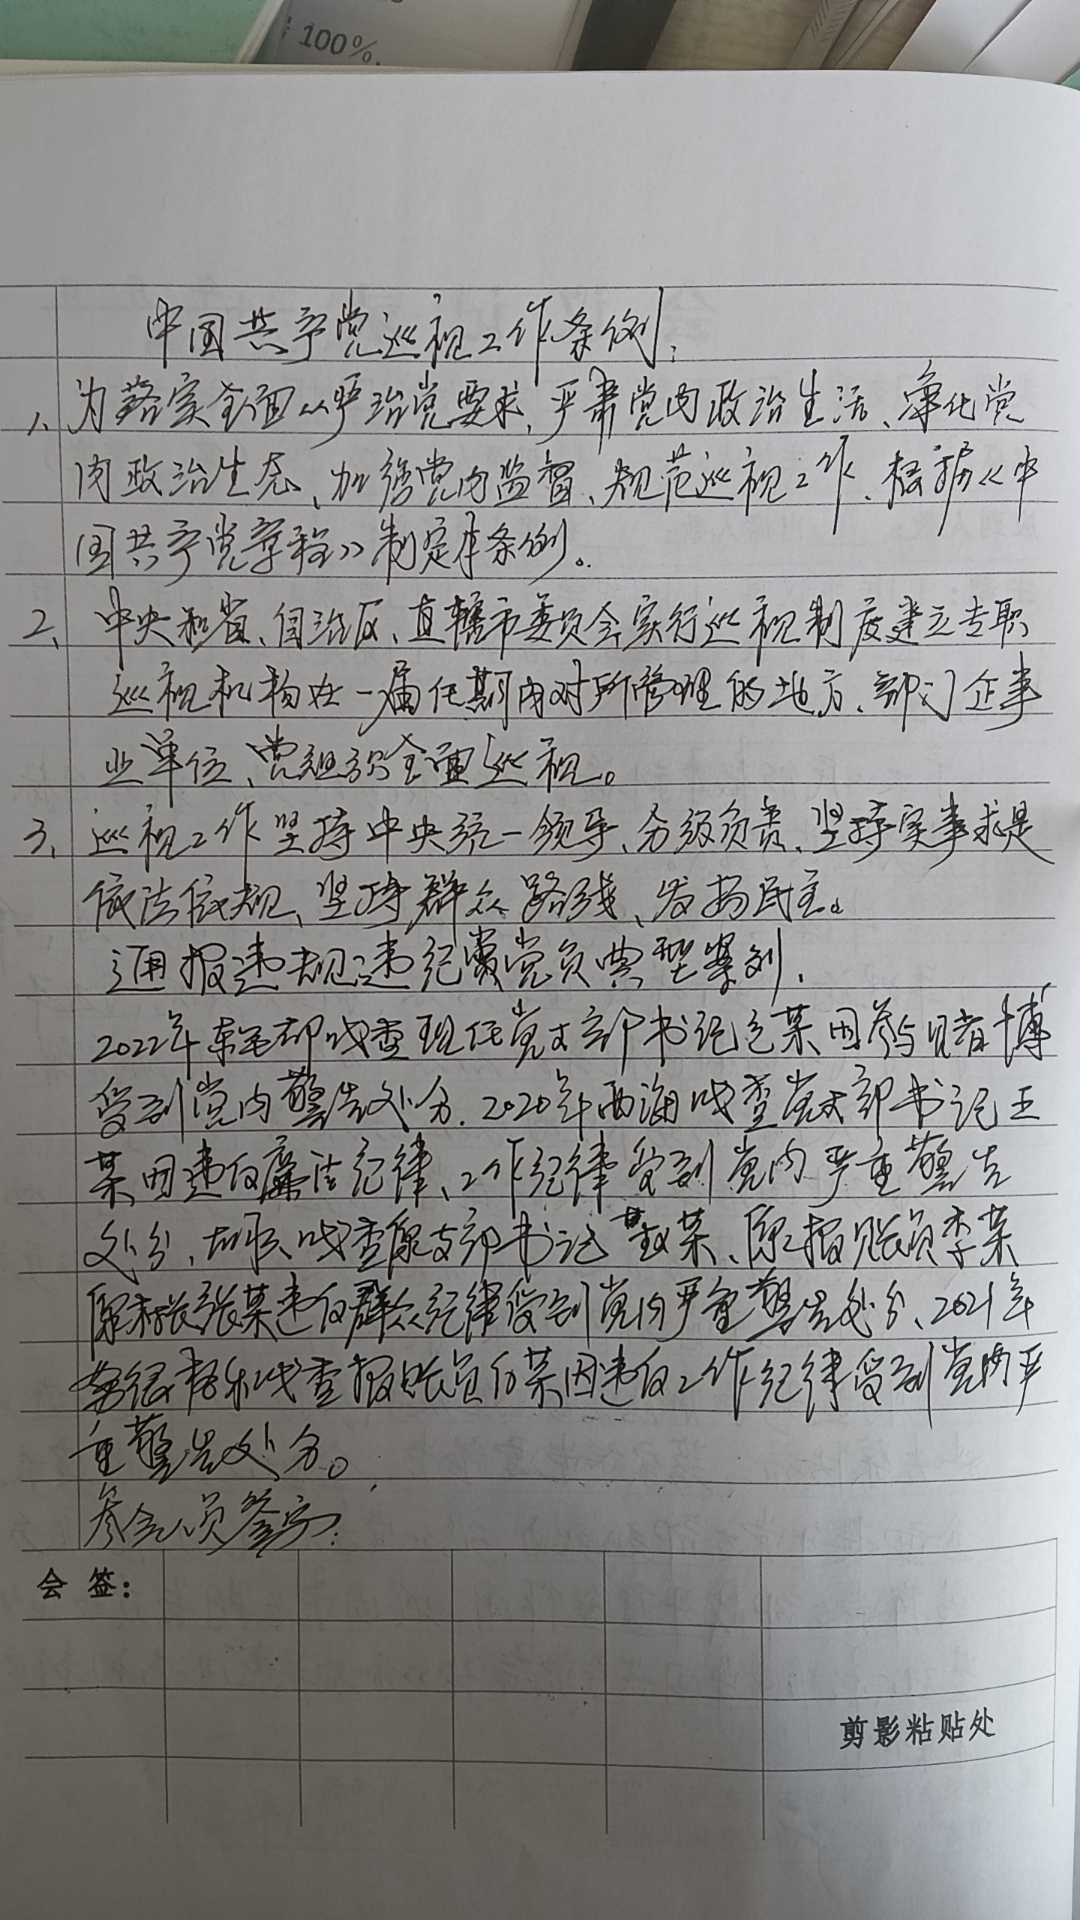 100%.
中国共产党巡视工作条例:
1、为落实全面从严治党要求,严肃党内政治生活、净化党
内政治生态、加强党内监督、规范巡视工作、根据《中
国共产党章程》制定本条例。
2、中央和省、自治区、直辖市委员会实行巡视制度建立专职
巡视机构在一届任期内对所管理的地方、部门企事
业单位、党组织全面巡视。
3、巡视工作坚持中央统一领导、分级负责、坚持实事求是
依法依规、坚持群众路线、发扬民主。
通报违规违纪党员典型案列.
2022年 现任党支部书记 某因参与赌博
受到党内警告处分.2020年西海 党支部书记王
某因违反廉洁纪律、工作纪律受到党内严重警告
处分, 原支部书记 某、原报账员李某
原村长张某违反群众纪律受到党内严重警告处分、2021年
报账员 某因违反工作纪律受到党内严
重警告处分。
参会人员签字:
会 签:
剪影粘贴处